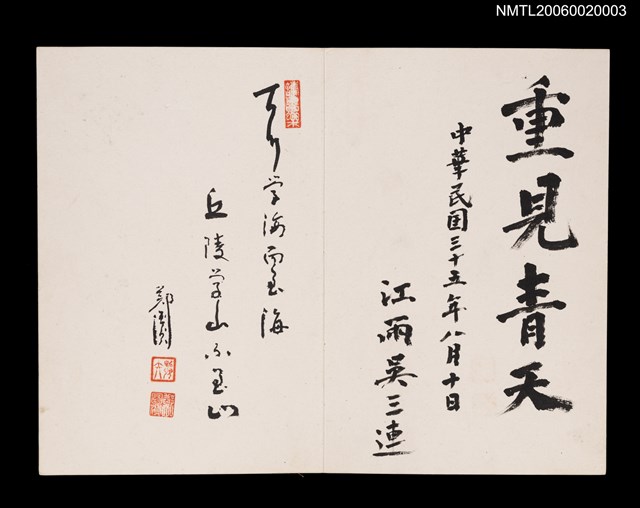 NMTL20060020003
重見青天
中華民国三十五年八月十日
江雨吳三連
百川学海而至海
丘陵学山不至山